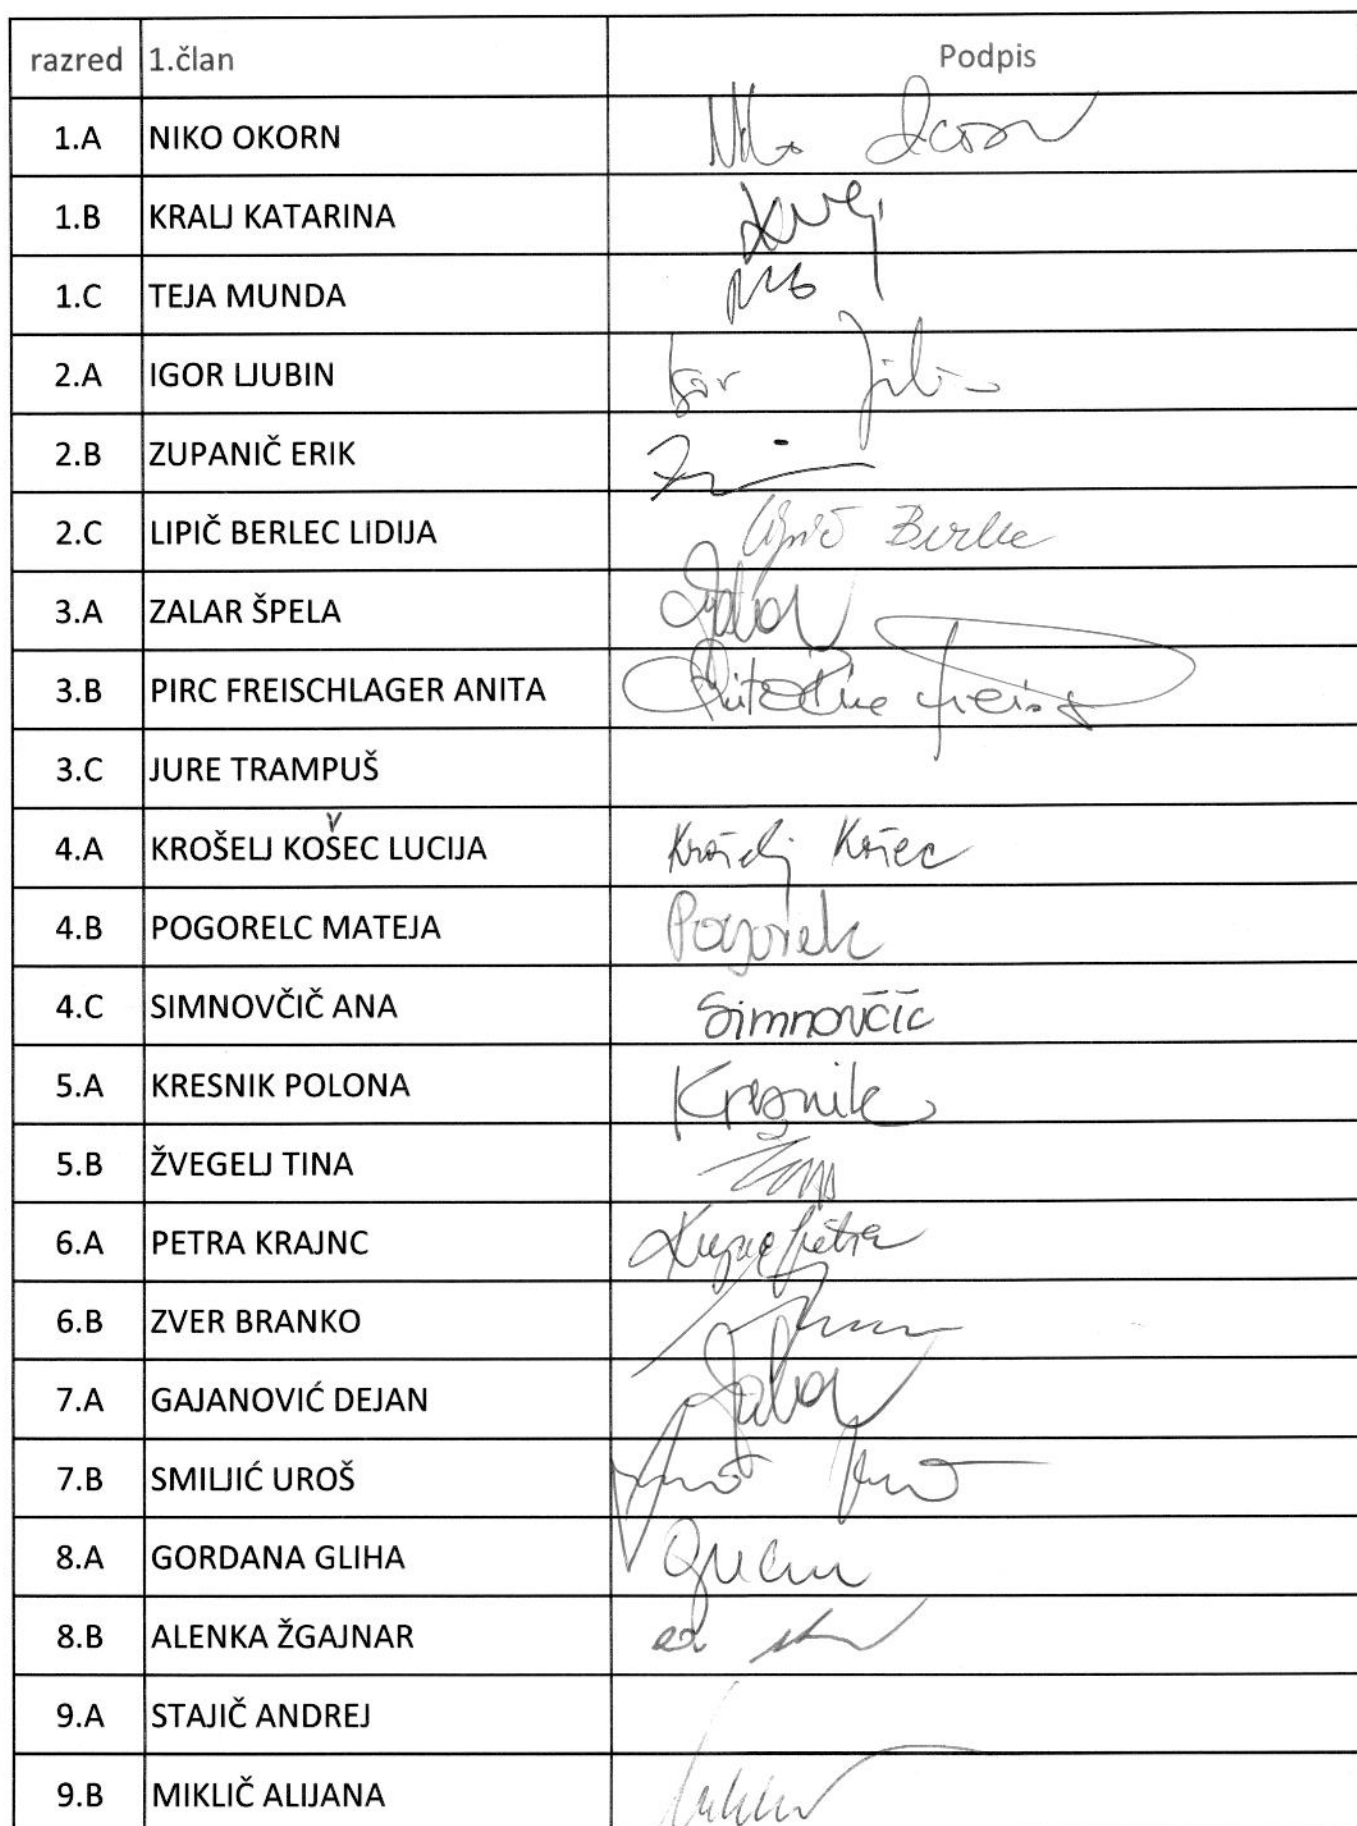 razred 1.član Podpis
1.A NIKO OKORN
1.B KRALJ KATARINA
1.C TEJA MUNDA
2.A IGOR LJUBIN Igor
2.B ZUPANIČ ERIK
2.C LIPIČ BERLEC LIDIJA Lipič Berlec
3.A ZALAR ŠPELA Zalar
3.B PIRC FREISCHLAGER ANITA Anita
3.C JURE TRAMPUŠ
4.A KROŠELJ KOŠEC LUCIJA Krošelj Košec
4.B POGORELC MATEJA Pogorelc
4.C SIMNOVČIČ ANA Simnovčič
5.A KRESNIK POLONA Kresnik
5.B ŽVEGELJ TINA
6.A PETRA KRAJNC Krajnc Petra
6.B ZVER BRANKO
7.A GAJANOVIĆ DEJAN Zalar
7.B SMILJIĆ UROŠ
8.A GORDANA GLIHA
8.B ALENKA ŽGAJNAR
9.A STAJIČ ANDREJ
9.B MIKLIČ ALIJANA